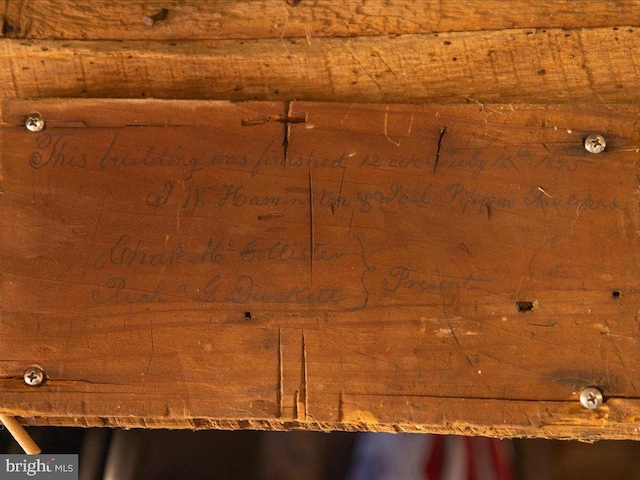 This building was finished 12 July
J. W. Harrington & Joel Pippin
Chas Mc Collister
Rich^d G Duckett } Present
bright MLS